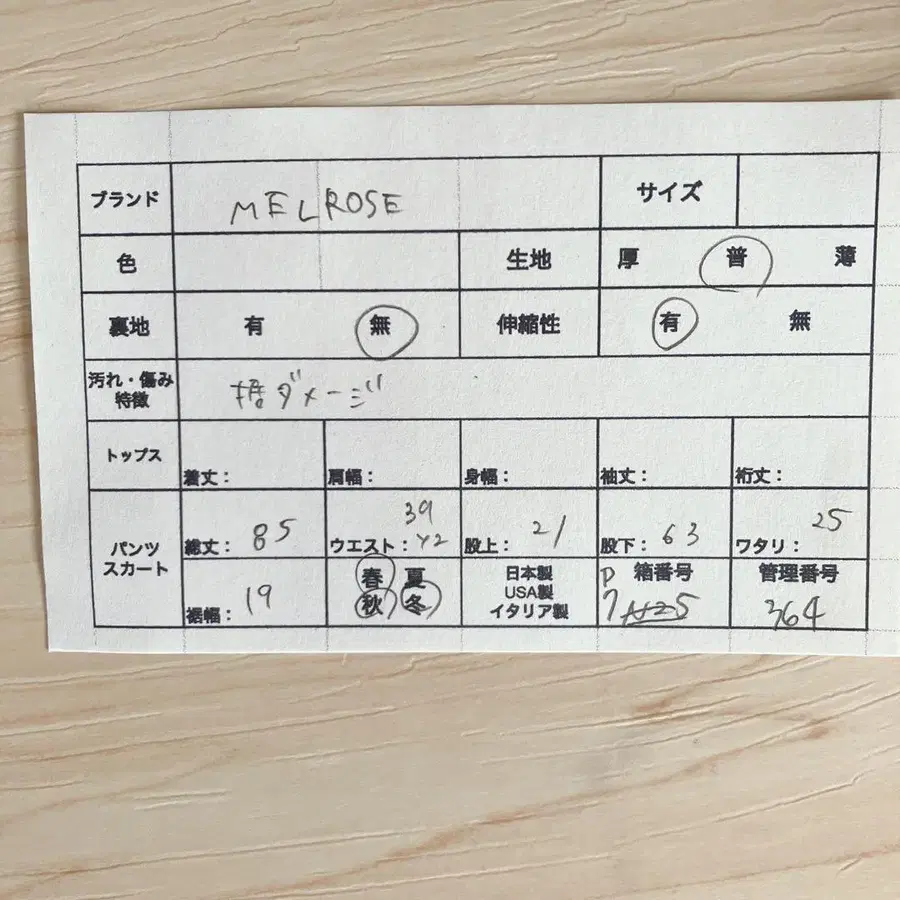 ブランド MELROSE サイズ
色 生地 厚 普 薄
裏地 有 無 伸縮性 有 無
汚れ・傷み
特徴 裾ダメージ
トップス 着丈: 肩幅: 身幅: 袖丈: 裄丈:
パンツ
スカート
39 25
総丈: 85 ウエスト: 42 股上: 21 股下: 63 ワタリ:
裾幅: 19
春 夏
秋 冬
日本製
USA製
イタリア製
P 箱番号
7
管理番号
364